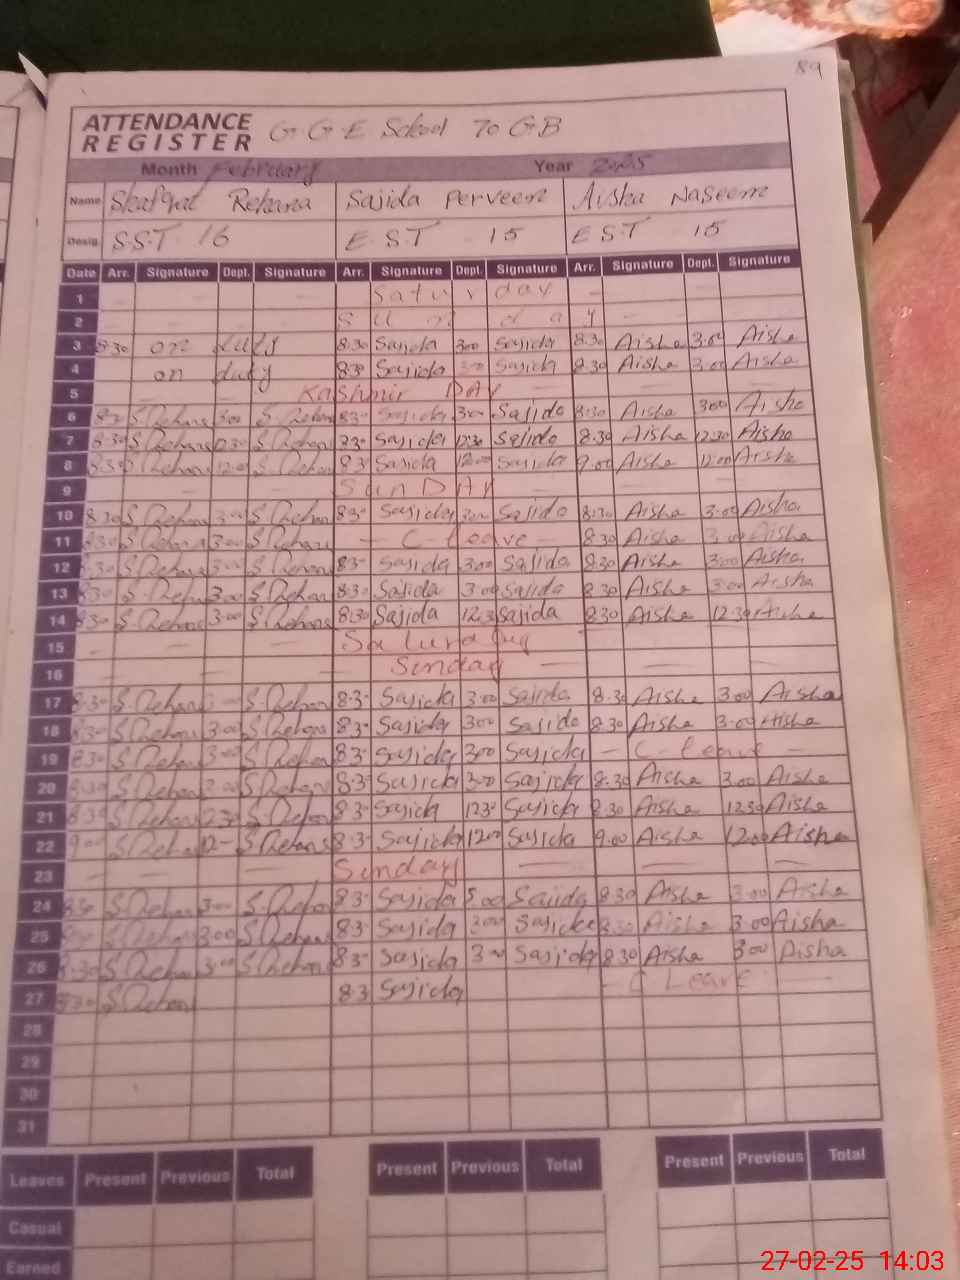 89
ATTENDANCE REGISTER G.G.E School 70 GB
Month February Year 2025
Name Rehana Sajida Perveen Aisha Naseem
Desig. S.S.T 16 E.S.T 15 E.S.T 15
Date Arr. Signature Dept. Signature Arr. Signature Dept. Signature Arr. Signature Dept. Signature
1 Saturday
2 Sunday
3 8:30 on duty 8:30 Sajida 3:00 Sajida 8:30 Aisha 3:00 Aisha
4 on duty 8:3 Sajida Sajida 8:30 Aisha 3:00 Aisha
5 Kashmir DAY
6 S.Rehana 3:00 S.Rehana 8:3 Sajida 3:00 Sajida 8:30 Aisha 3:00 Aisha
7 8:30 S.Rehana S.Rehana Sajida 12:30 Sajida 8:30 Aisha 12:30 Aisha
8 8:30 S.Rehana 12:00 S.Rehana 8:3 Sajida 12:00 Sajida 9:00 Aisha 12:00 Aisha
9 SUNDAY
10 8:30 S.Rehana 3:00 S.Rehana 8:3 Sajida 3:00 Sajida 8:30 Aisha 3:00 Aisha
11 8:30 S.Rehana 3:00 S.Rehana – C-leave – 8:30 Aisha 3:00 Aisha
12 8:30 S.Rehana 3:00 S.Rehana 8:3 Sajida 3:00 Sajida 8:30 Aisha 3:00 Aisha
13 8:30 S.Rehana 3:00 S.Rehana 8:3 Sajida 3:00 Sajida 8:30 Aisha 3:00 Aisha
14 8:30 S.Rehana 3:00 S.Rehana 8:30 Sajida 12:3 Sajida 8:30 Aisha 12:30 Aisha
15 Saturday
16 Sunday
17 8:30 S.Rehana S.Rehana 8:3 Sajida 3:00 Sajida 8:30 Aisha 3:00 Aisha
18 8:30 S.Rehana 3:00 S.Rehana 8:3 Sajida 3:00 Sajida 8:30 Aisha 3:00 Aisha
19 8:30 S.Rehana 3:00 S.Rehana 8:3 Sajida 3:00 Sajida – C-leave –
20 8:30 S.Rehana 3:00 S.Rehana 8:3 Sajida 3:00 Sajida 8:30 Aisha 3:00 Aisha
21 S.Rehana S.Rehana 8:3 Sajida 12:3 Sajida 8:30 Aisha 12:30 Aisha
22 9:00 S.Rehana 12 S.Rehana 8:3 Sajida 12:00 Sajida 9:00 Aisha 12:00 Aisha
23 Sunday
24 S.Rehana 3:00 S.Rehana 8:3 Sajida Sajida 8:30 Aisha 3:00 Aisha
25 S.Rehana 3:00 S.Rehana 8:3 Sajida 3:00 Sajida 8:30 Aisha 3:00 Aisha
26 8:30 S.Rehana 3:00 S.Rehana 8:3 Sajida 3:00 Sajida 8:30 Aisha 3:00 Aisha
27 8:30 S.Rehana 8:3 Sajida – C Leave –
28
29
30
31
Leaves Present Previous Total Present Previous Total Present Previous Total
Casual
Earned
27-02-25 14:03